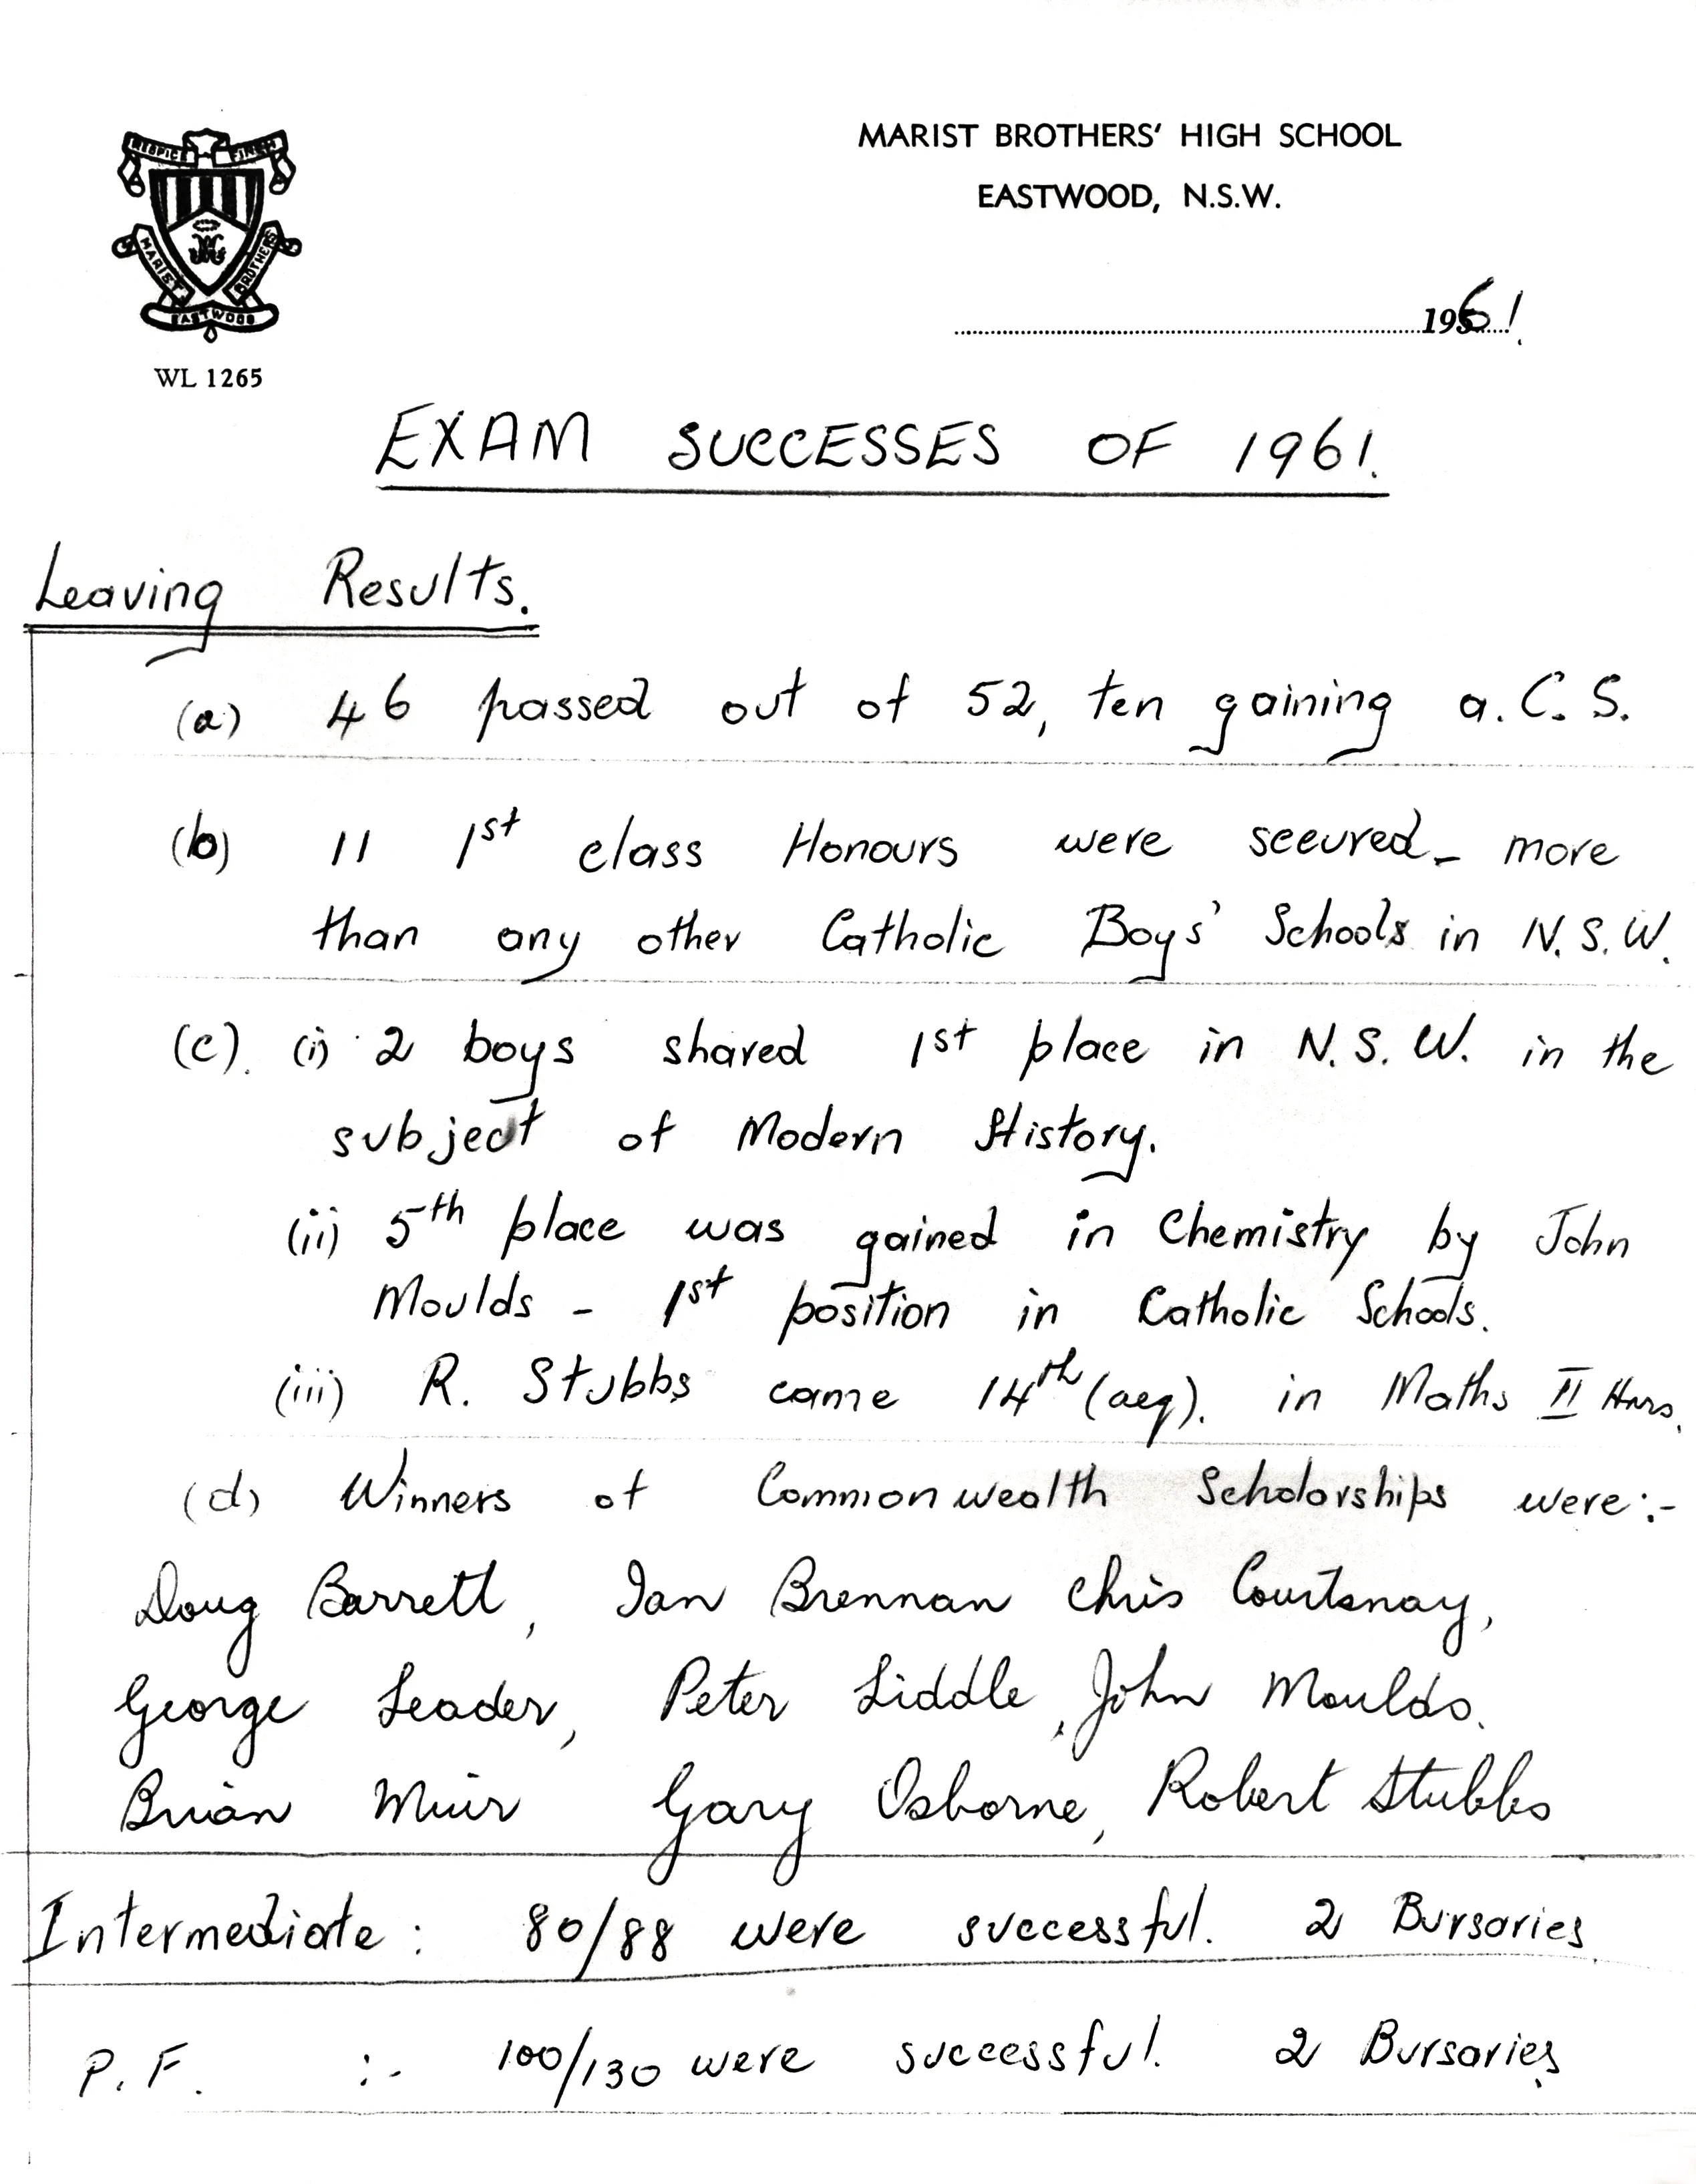 RESPICE FINEM
MARIST BROTHERS
EASTWOOD
WL 1265
MARIST BROTHERS' HIGH SCHOOL
EASTWOOD, N.S.W.
1961
EXAM SUCCESSES OF 1961.
Leaving Results.
(a) 46 passed out of 52, ten gaining a.C.S.
(b) 11 1st class Honours were secured - more
than any other Catholic Boys' Schools in N.S.W.
(c). (i) 2 boys shared 1st place in N.S.W. in the
subject of Modern History.
(ii) 5th place was gained in Chemistry by John
Moulds - 1st position in Catholic Schools.
(iii) R. Stubbs came 14th (aeq). in Maths II Hnrs.
(d) Winners of Commonwealth Scholarships were:-
Doug Barrett, Ian Brennan Chris Courtenay,
George Leader, Peter Liddle, John Moulds.
Brian Muir Gary Osborne, Robert Stubbs
Intermediate: 80/88 were successful. 2 Bursaries
P.F. :- 100/130 were successful. 2 Bursaries